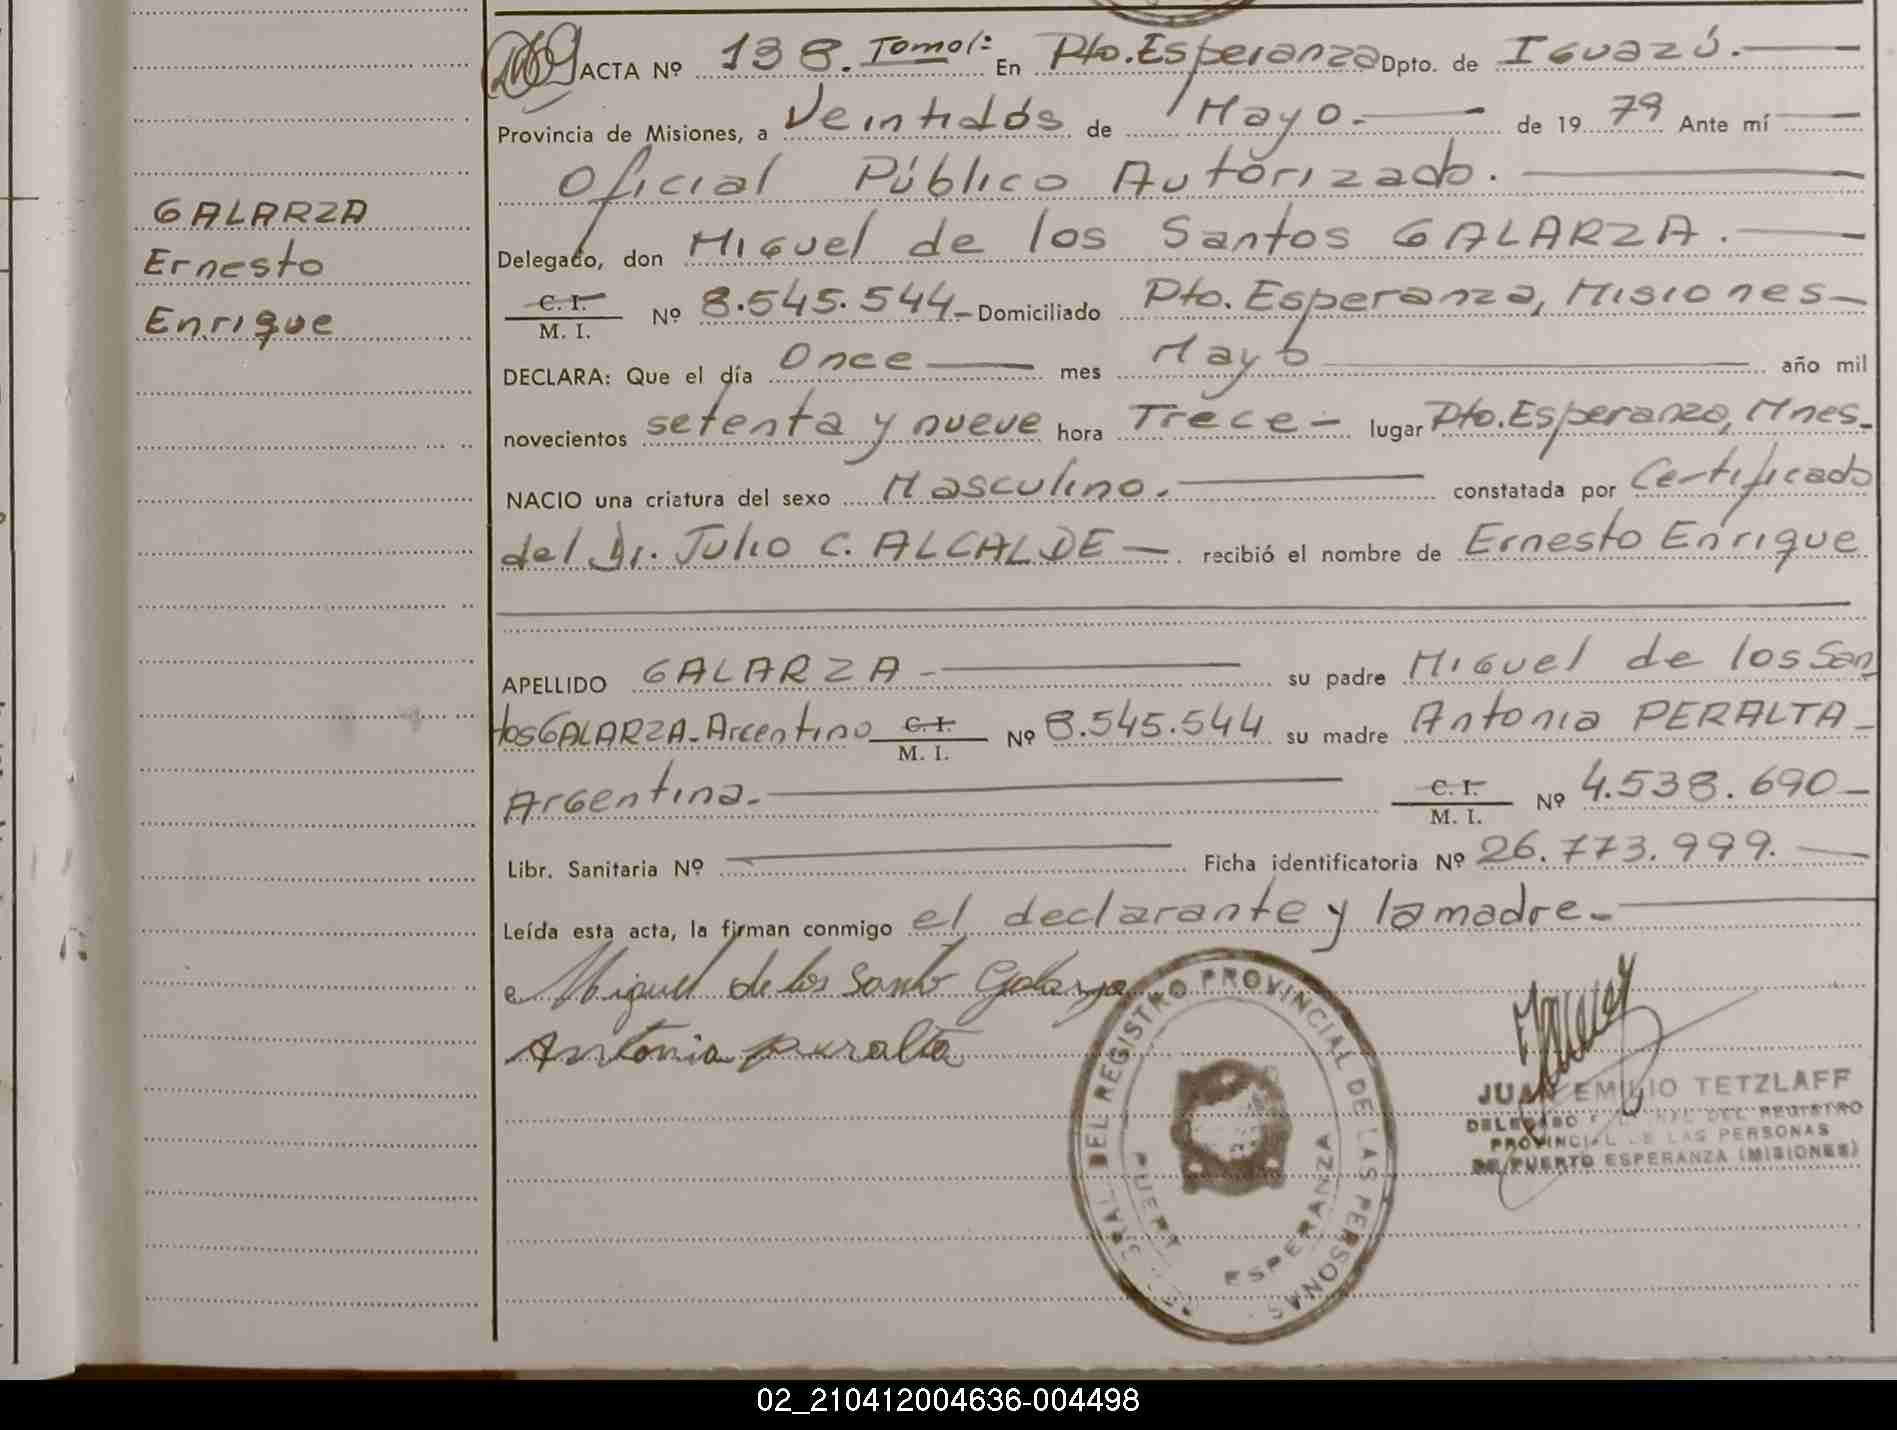 GALARZA
Ernesto
Enrique
ACTA Nº 138. Tomo I: En Pto. Esperanza Dpto. de Iguazú.
Provincia de Misiones, a Veintidós de Mayo. de 19 79 Ante mí
Oficial Público Autorizado.
Delegado, don Miguel de los Santos GALARZA.
C. I.
M. I. Nº 8.545.544 Domiciliado Pto. Esperanza, Misiones
DECLARA: Que el día Once mes Mayo año mil
novecientos setenta y nueve hora Trece lugar Pto. Esperanza, Mnes.
NACIO una criatura del sexo Masculino. constatada por Certificado
del Dr. Julio C. ALCALDE recibió el nombre de Ernesto Enrique
APELLIDO GALARZA su padre Miguel de los San
tos GALARZA. Argentino C. I. M. I. Nº 8.545.544 su madre Antonia PERALTA
Argentina. C. I. M. I. Nº 4.538.690
Libr. Sanitaria Nº Ficha identificatoria Nº 26.773.999.
Leída esta acta, la firman conmigo el declarante y la madre
Miguel de los Santo Galarza
Antonia Peralta
DEL REGISTRO PROVINCIAL DE LAS PERSONAS
ESPERANZA
JUAN EMILIO TETZLAFF
DELEGADO DEL REGISTRO
PROVINCIAL DE LAS PERSONAS
DE PUERTO ESPERANZA (MISIONES)
02_210412004636-004498